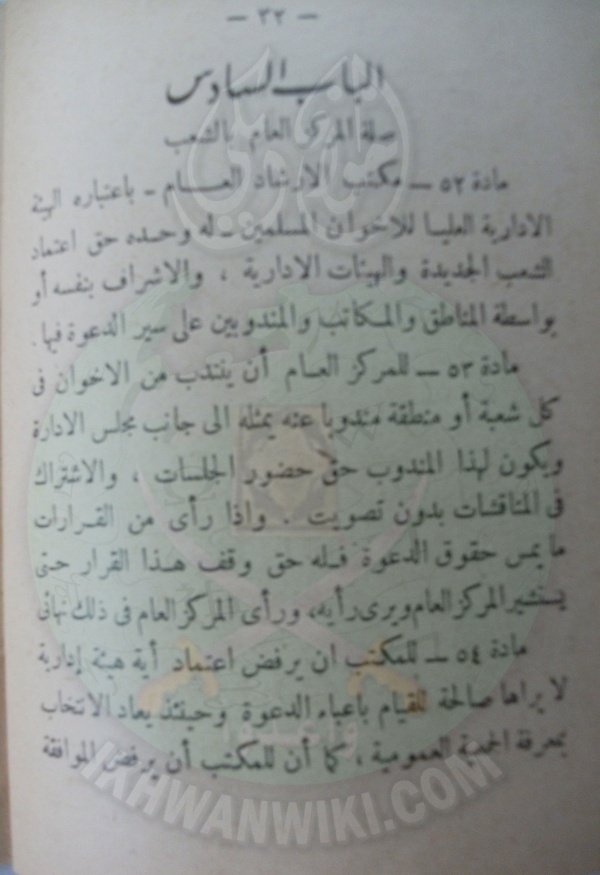 — ٣٢ —
الباب السادس
صلة المركز العام بالشعب
مادة ٥٢ — مكتب الارشاد العـــام - باعتباره الهيئة
الادارية العليا للاخوان المسلمين - له وحده حق اعتماد
الشعب الجديدة والهيئات الادارية ، والاشراف بنفسه أو
بواسطة المناطق والمكاتب والمندوبين على سير الدعوة فيها .
مادة ٥٣ — للمركز العـام أن ينتدب من الاخوان فى
كل شعبة أو منطقة مندوبا عنه يمثله الى جانب مجلس الادارة
ويكون لهذا المندوب حق حضور الجلسات ، والاشتراك
فى المناقشات بدون تصويت . واذا رأى من القرارات
ما يمس حقوق الدعوة فله حق وقف هذا القرار حتى
يستشير المركز العام ويرى رأيه ، ورأى المركز العام فى ذلك نهائى
مادة ٥٤ — للمكتب ان يرفض اعتماد أية هيئة إدارية
لا يراها صالحة للقيام بأعباء الدعوة وحينئذ يعاد الانتخاب
بمعرفة الجمعية العمومية ، كما أن للمكتب أن يرفض الموافقة
وأعدوا
IKHWANWIKI.COM